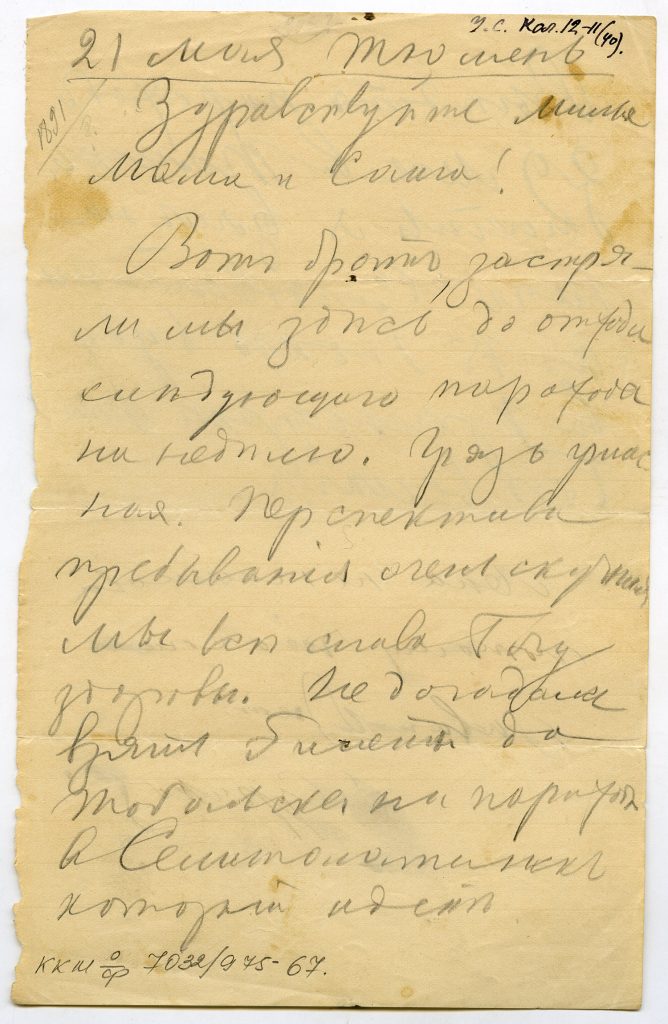 У.С. Кал. 12-11 (40).
21 мая Тюмень
1891 г.
Здравствуйте милые
Мама и Саша!
Вотъ братъ, застря-
ли мы здѣсь до отхода
слѣдующаго парохода
на недѣлю. Грязь ужас-
ная. Перспектива
пребыванія очень скучная
мы всѣ слава Богу
здоровы. Не догадались
взять билетъ до
Тобольска на пароходъ
в Семипалатинскъ
который идетъ
ККМ о/ф 7032/975-67.